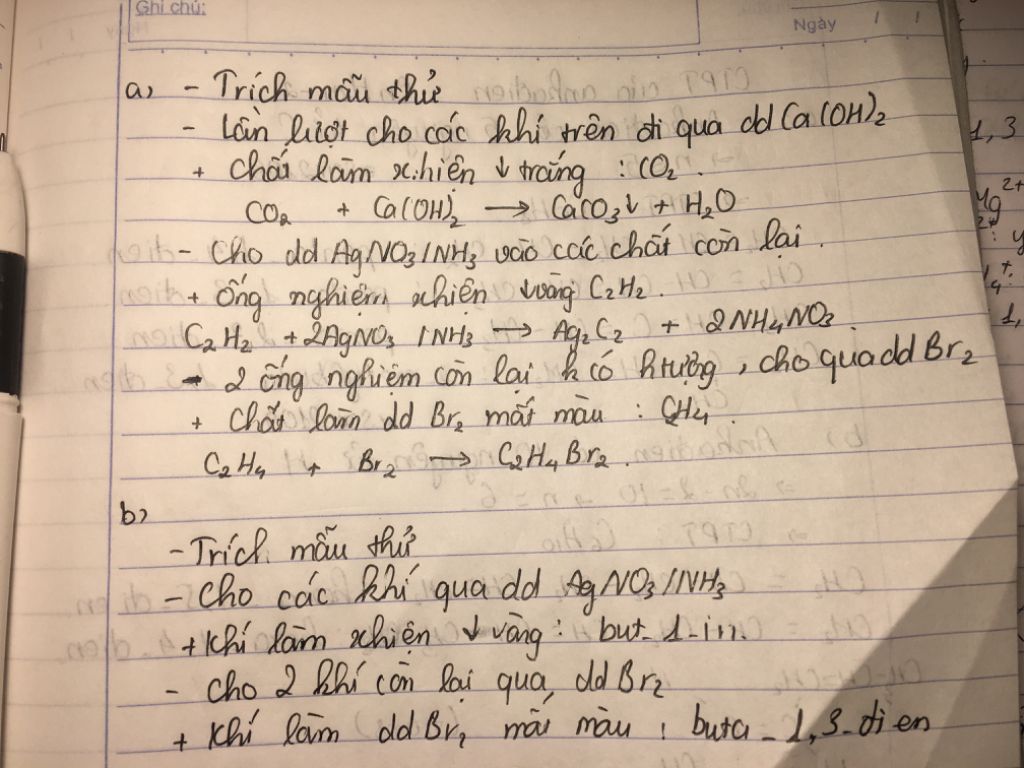 Ghi chú:
Ngày / /
a, - Trích mẫu thử
- lần lượt cho các khí trên đi qua dd Ca(OH)2
+ Chất làm x.hiện ↓ trắng : CO2.
CO2 + Ca(OH)2 → CaCO3↓ + H2O
- Cho dd AgNO3/NH3 vào các chất còn lại.
+ ống nghiệm xhiện ↓vàng C2H2.
C2H2 + 2AgNO3 /NH3 → Ag2C2 + 2NH4NO3
- 2 ống nghiệm còn lại k có htượng, cho qua dd Br2
+ Chất làm dd Br2 mất màu : CH4.
C2H4 + Br2 → C2H4Br2.
b,
- Trích mẫu thử
- Cho các khí qua dd AgNO3/NH3
+ Khí làm xhiện ↓ vàng : but-1-in.
- Cho 2 khí còn lại qua dd Br2
+ Khí làm dd Br2 mất màu : buta-1,3-đien